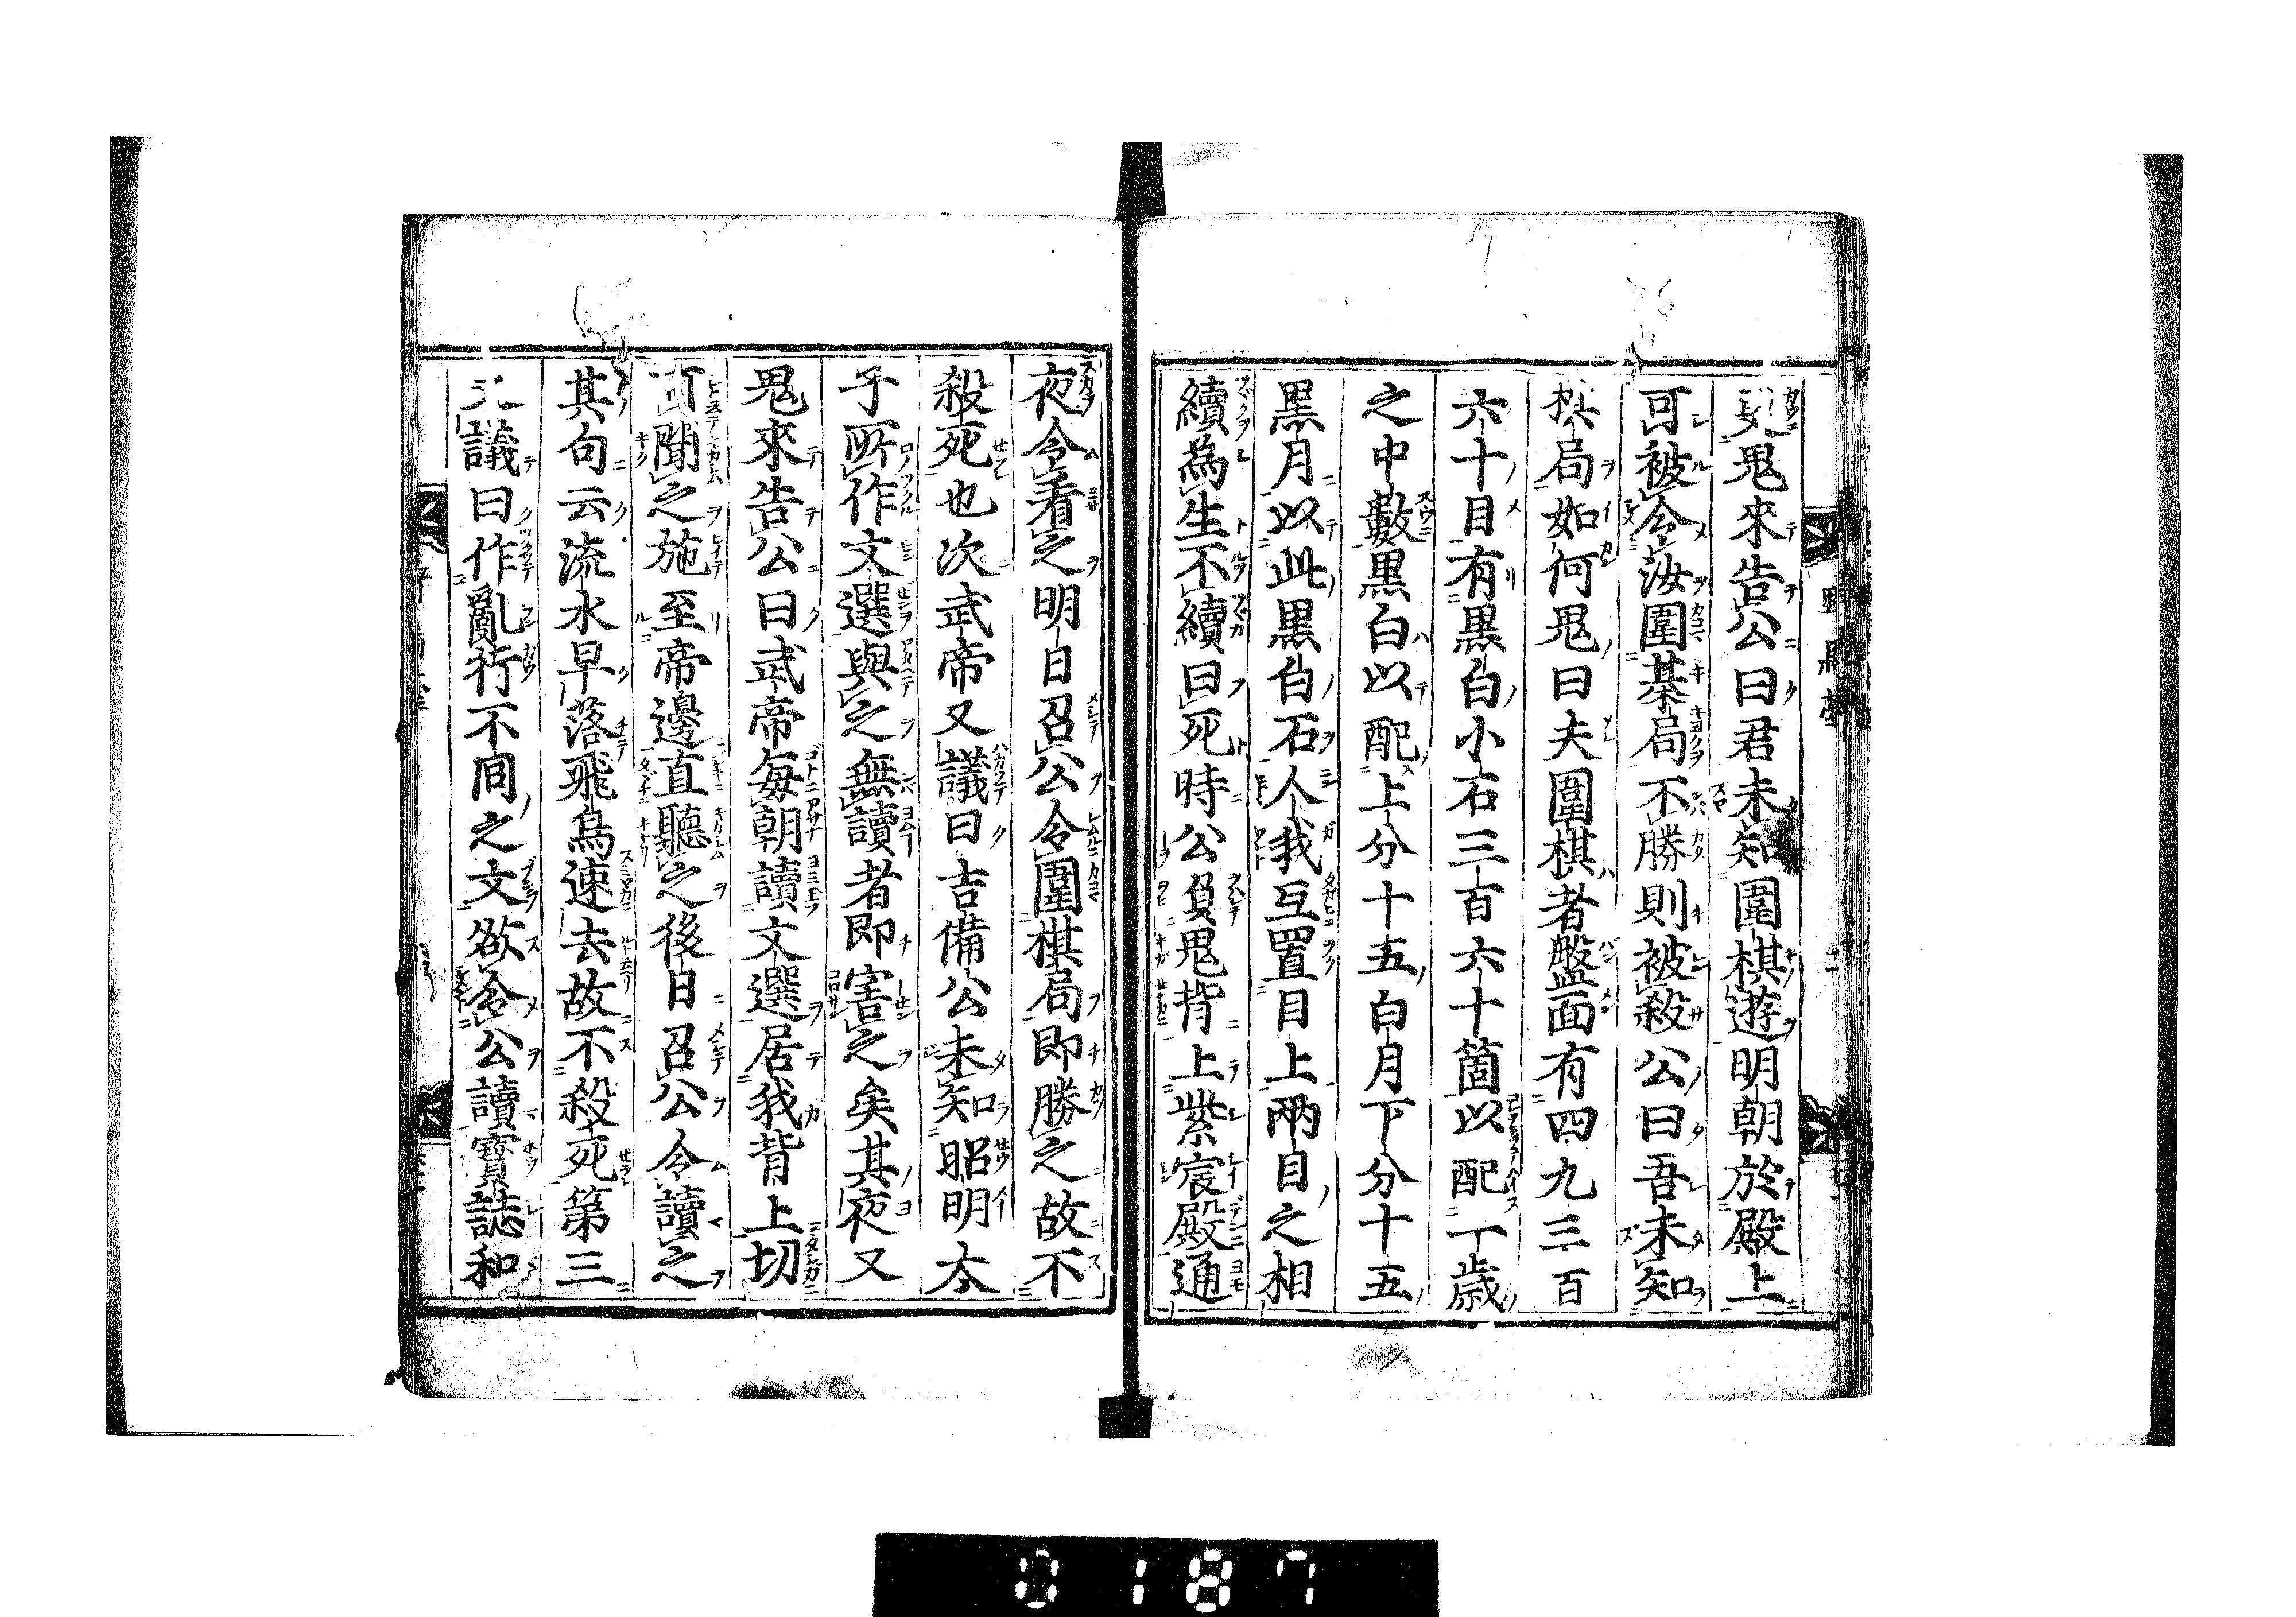 鬼來告公曰君未知圍棋遊明朝於殿上
可被令汝圍棊局不勝則被殺公曰吾未知
棋局如何鬼曰夫圍棋者盤面有四九三百
六十目有黒白小石三百六十箇以配一歳
之中數黒白以配上分十五白月下分十五
黒月以此黒白石人我互置目上兩目之相
續為生不續曰死時公負鬼背上紫宸殿通
夜令看之明日召公令圍棋局即勝之故不
殺死也次武帝又議曰吉備公未知昭明太
子所作文選與之無讀者即害之矣其夜又
鬼來告公曰武帝毎朝讀文選居我背上切
可聞之施至帝邊直聽之後日召公令讀之
其句云流水早落飛鳥速去故不殺死第三
議曰作亂行不同之文欲令公讀寶誌和
0187